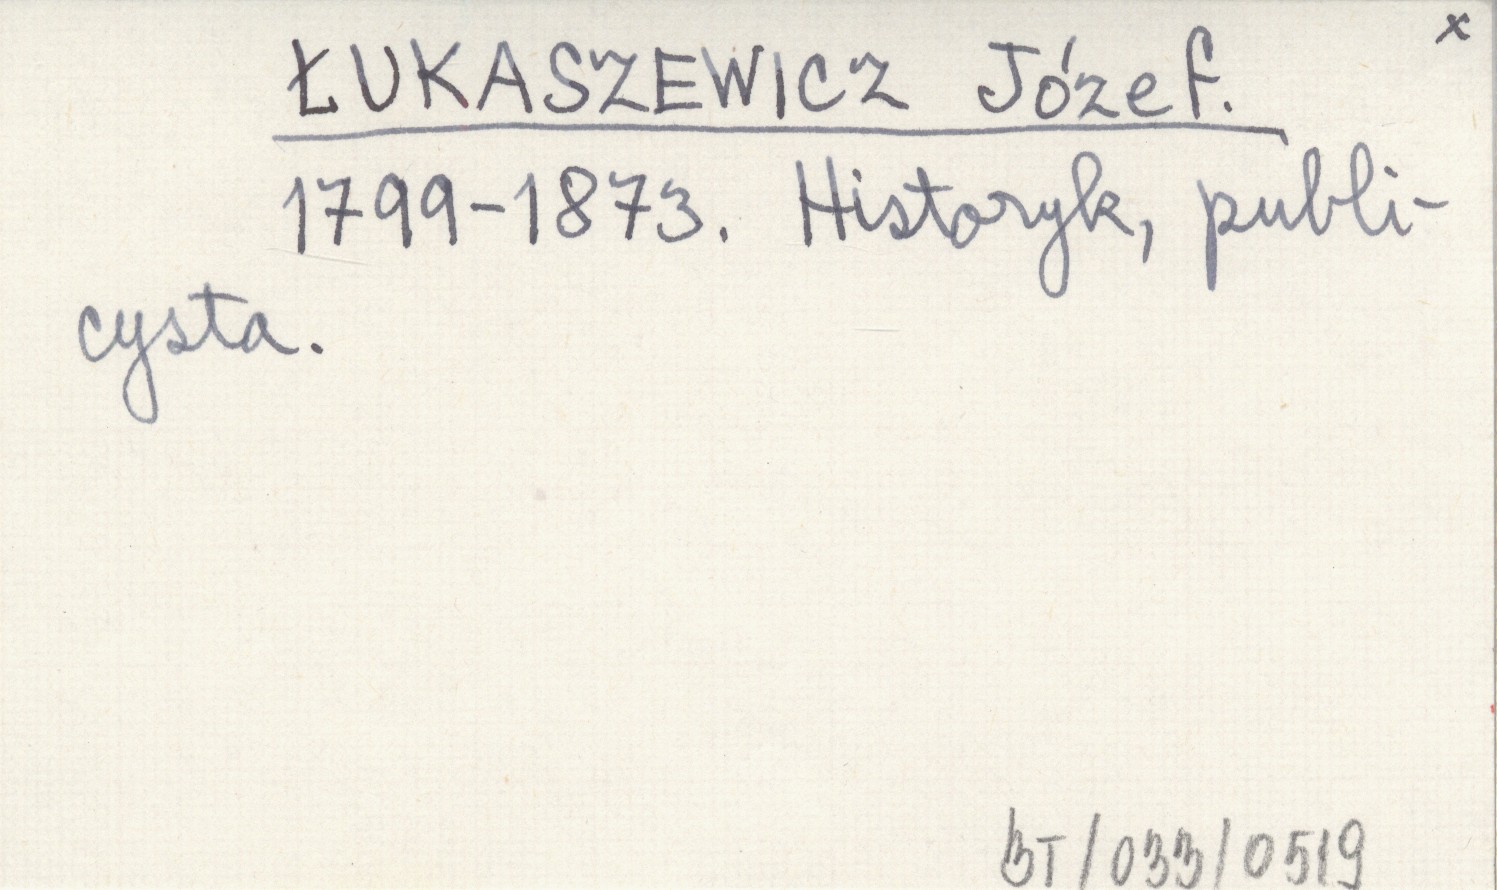 x
ŁUKASZEWICZ Józef.
1799-1873. Historyk, publi-
cysta.
BT/033/0519